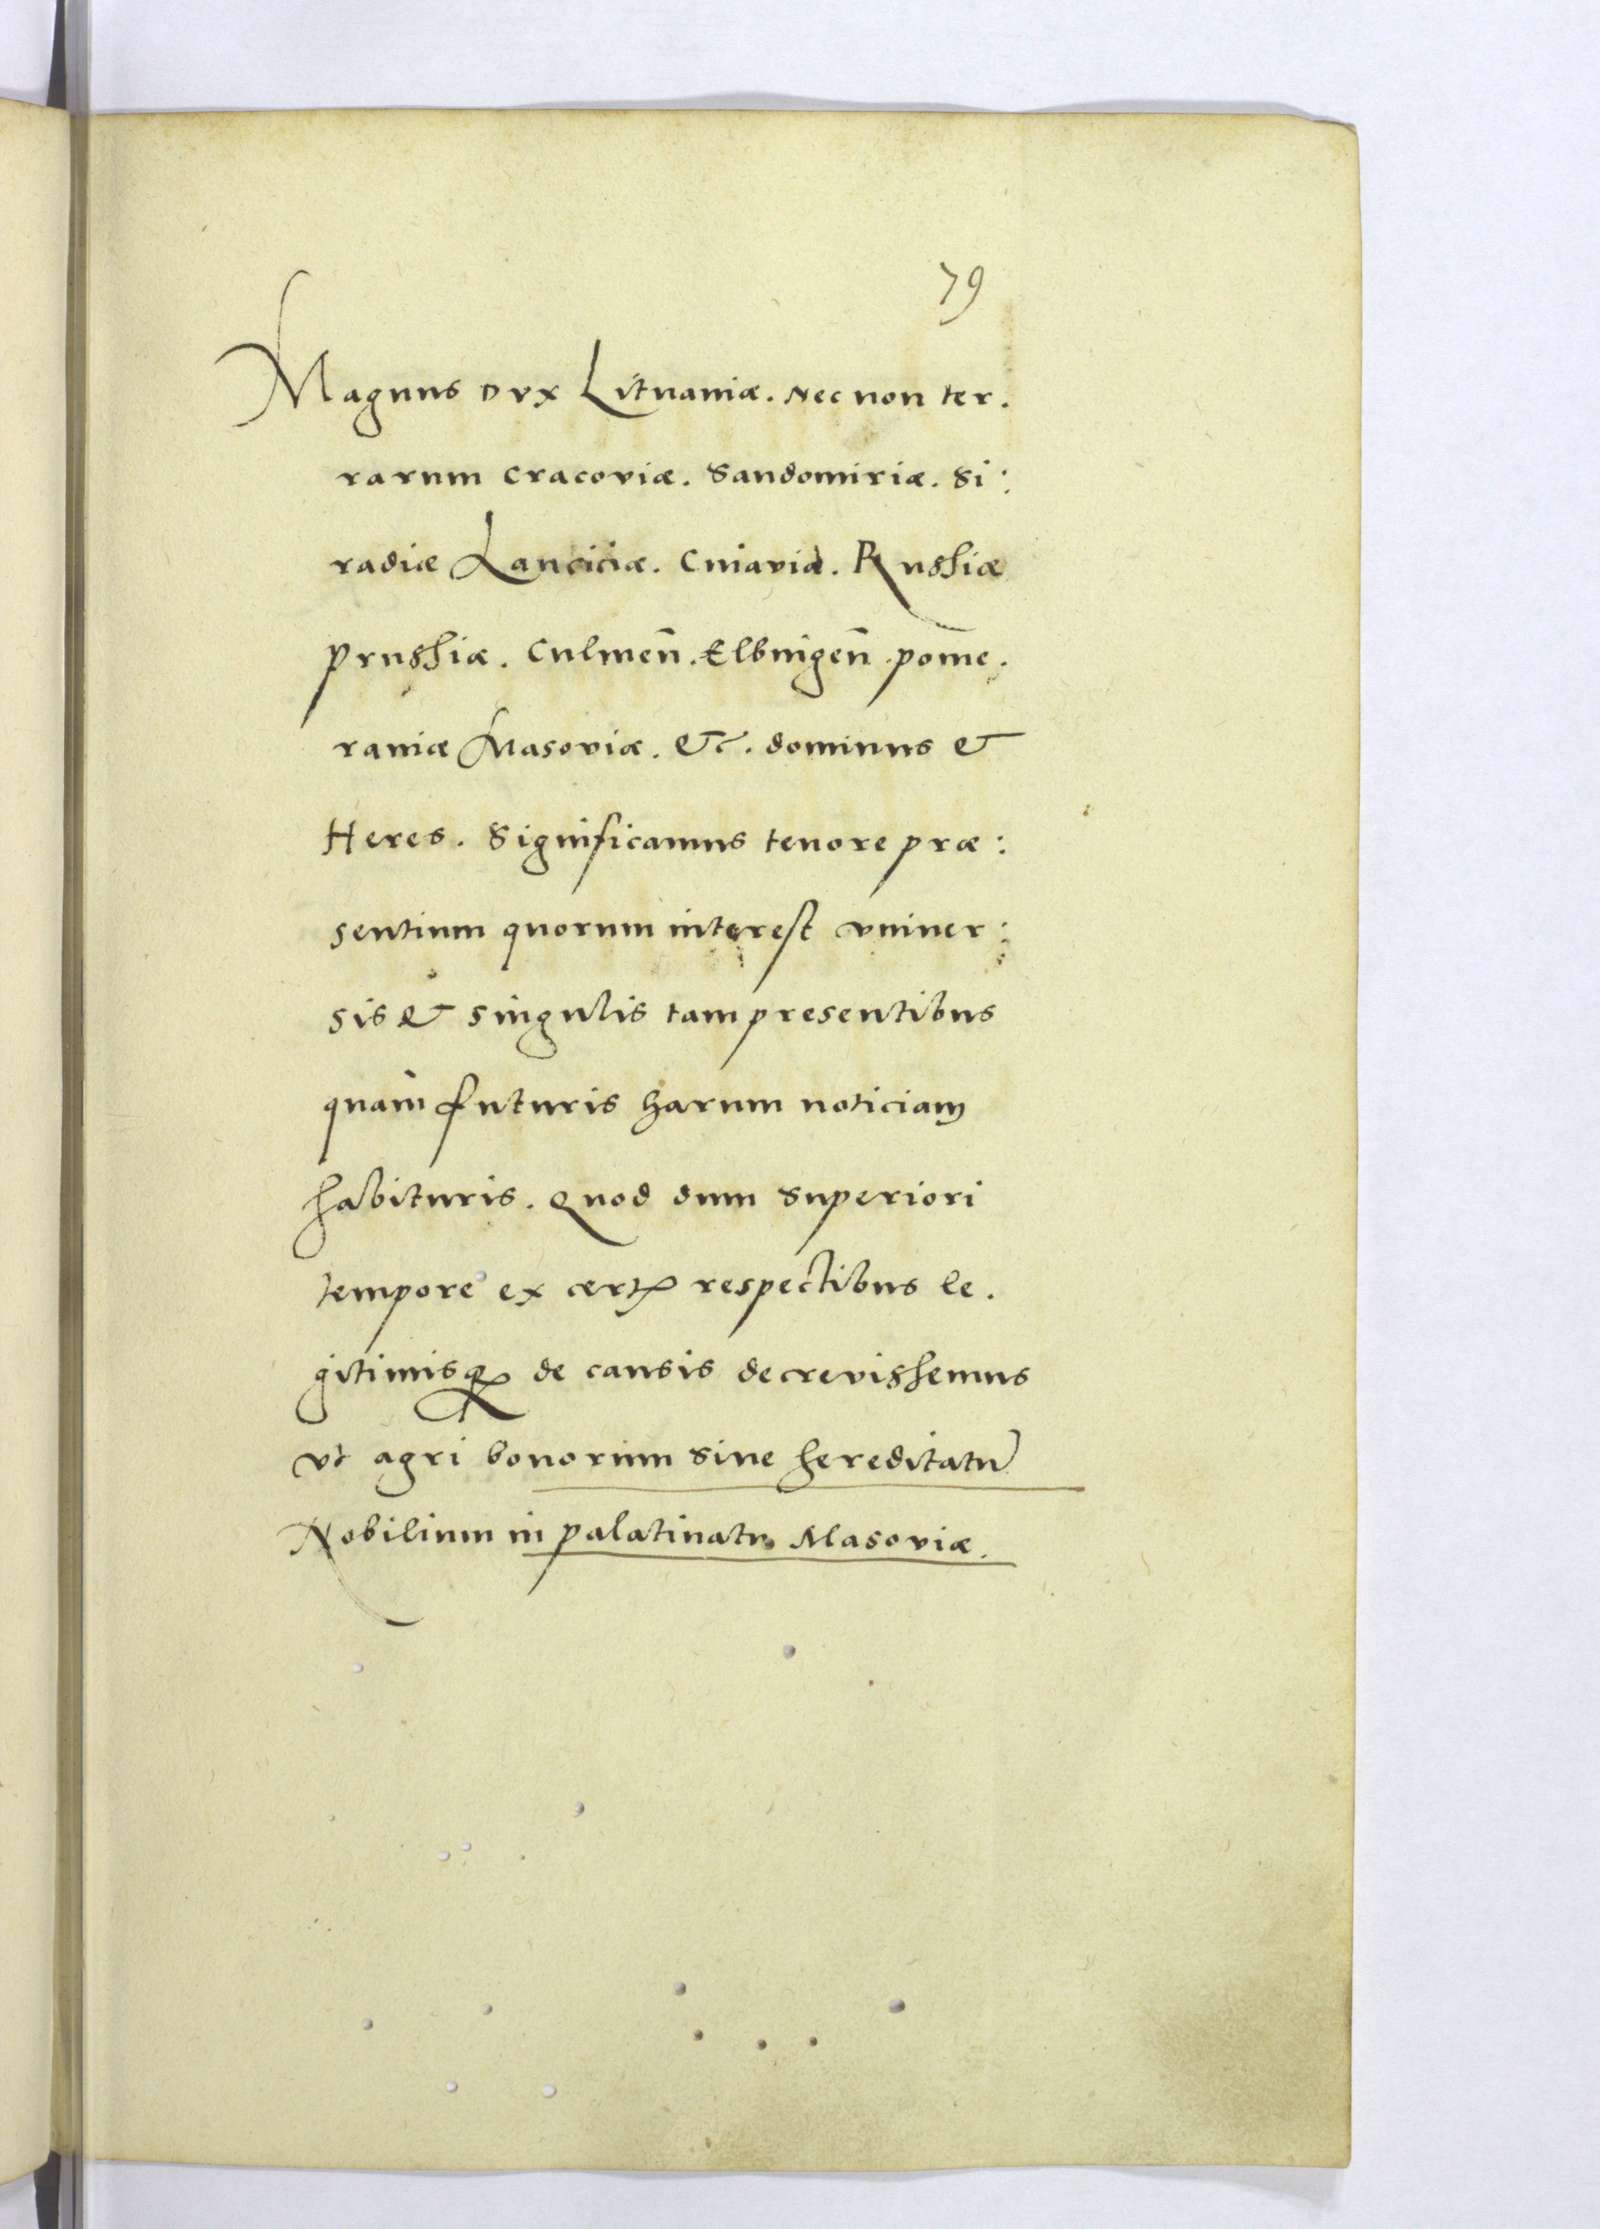 79
Magnus Dux Lituaniæ. Nec non ter.
rarum Cracoviæ. Sandomiriæ. Si:
radiæ Lanciciæ. Cuiaviæ. Russiæ
Prussiæ. Culmeñ. Elbingeñ. pome.
raniæ Masoviæ. &c. dominus &
Heres. Significamus tenore præ:
sentium quorum interest univer:
sis & singulis tam presentibus
quam futuris harum noticiam
habituris. Quod dum superiori
tempore ex certꝭ respectibus le.
gitimisqꝫ de causis decrevissemus
vt agri bonorum sive hereditatū
Nobilium in palatinatu Masoviæ.